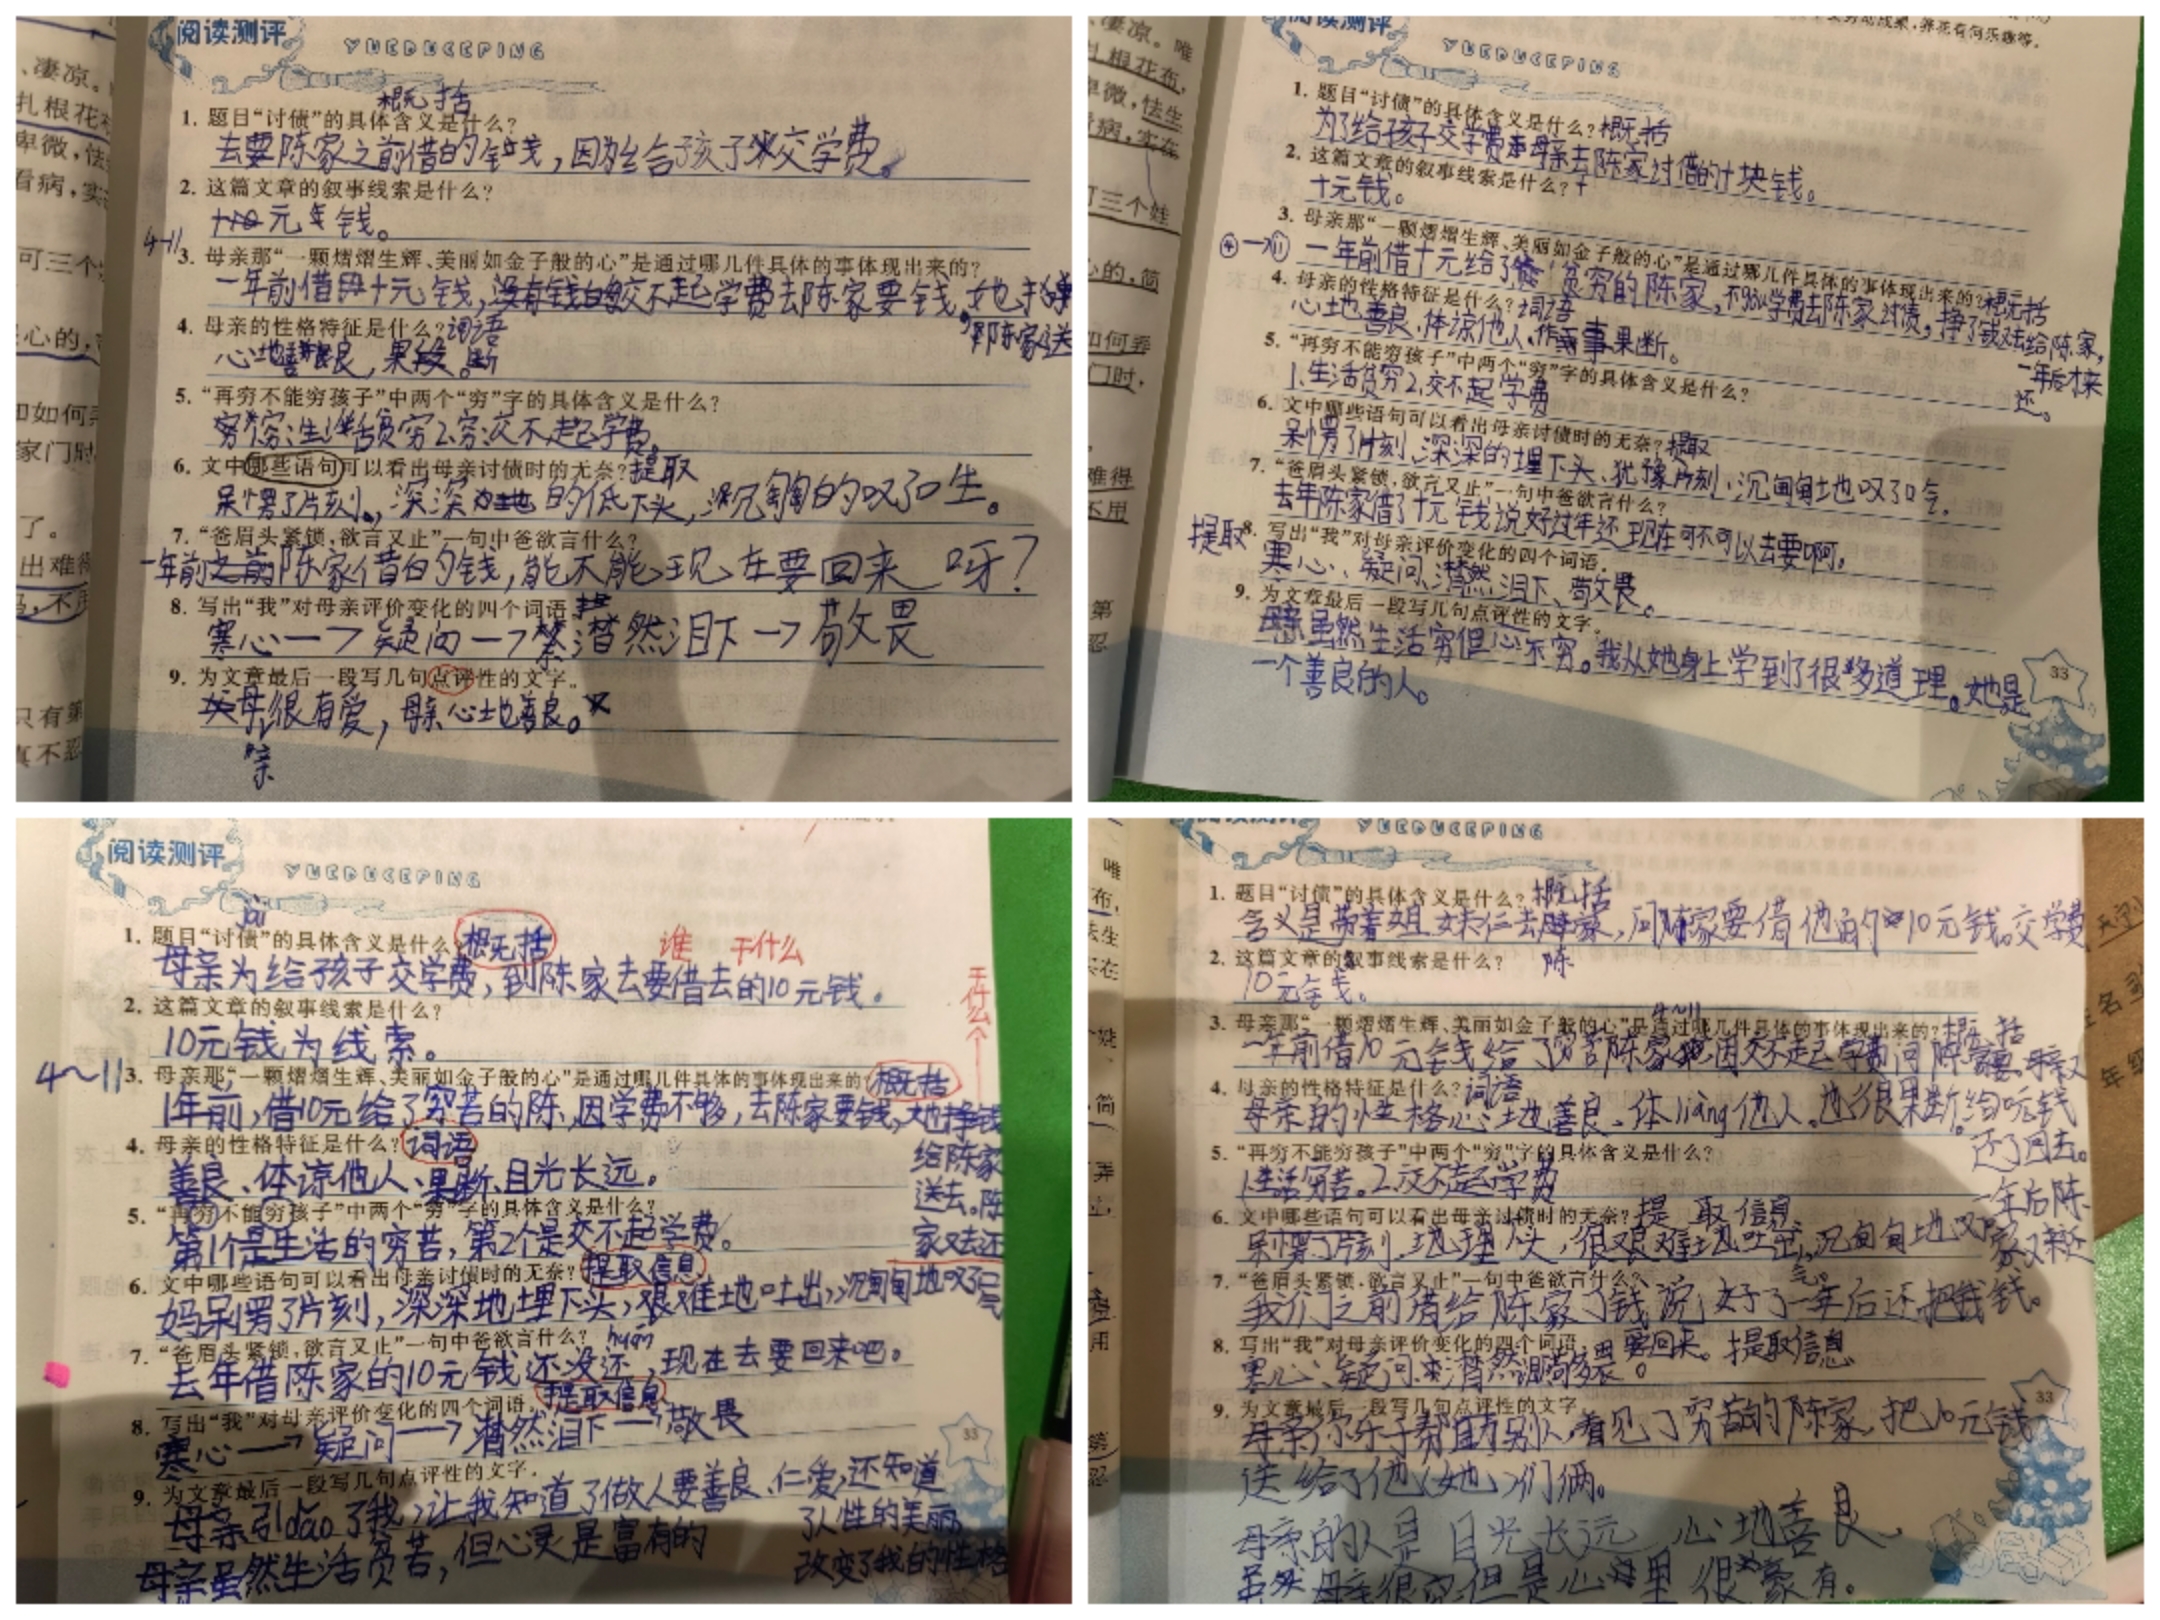 、凄凉。
扎根花布
卑微，怯
看病，实
可三个
心的，
如何
家门时
了。
出难得
不用
只有第
真不忍
阅读测评 YUEDUCEPING
概括
1. 题目“讨债”的具体含义是什么？
去要陈家之前借的钱，因为给孩子交学费。
2. 这篇文章的叙事线索是什么？
十元钱。
4-11
3. 母亲那“一颗熠熠生辉、美丽如金子般的心”是通过哪几件具体的事体现出来的？
一年前借十元钱，没有钱交不起学费去陈家要钱，她挣
4. 母亲的性格特征是什么？词语
陈家送
心地善良，果断。
5. “再穷不能穷孩子”中两个“穷”字的具体含义是什么？
穷：生活贫穷2.穷：交不起学费。
6. 文中哪些语句可以看出母亲讨债时的无奈？提取
呆愣了片刻，深深的低下头，沉甸甸的叹了口生。
7. “爸眉头紧锁，欲言又止”一句中爸欲言什么？
一年前陈家借的钱，能不能现在要回来呀？
8. 写出“我”对母亲评价变化的四个词语。
寒心→疑问→潜然泪下→敬畏
9. 为文章最后一段写几句点评性的文字。
父母很有爱，母亲心地善良。
亲
凄凉。唯
扎根花布，
卑微，怯生
病，实在
可三个娃
心的，简
如何弄
门时，
难得
不用
第
忍
养花有何乐趣等。
阅读测评 YUEDUCEPING
1. 题目“讨债”的具体含义是什么？概括
为了给孩子交学费母亲去陈家讨借的十块钱。
2. 这篇文章的叙事线索是什么？
十元钱。
3. 母亲那“一颗熠熠生辉、美丽如金子般的心”是通过哪几件具体的事体现出来的？概括
④→⑪ 一年前借十元给了贫穷的陈家，不够学费去陈家讨债，挣了钱又去给陈家，
一年后才来
还。
4. 母亲的性格特征是什么？词语
心地善良、体凉他人、做事果断。
5. “再穷不能穷孩子”中两个“穷”字的具体含义是什么？
1.生活贫穷2.交不起学费
6. 文中哪些语句可以看出母亲讨债时的无奈？提取
呆愣了片刻、深深的埋下头、犹豫片刻、沉甸甸地叹了口气。
7. “爸眉头紧锁，欲言又止”一句中爸欲言什么？
去年陈家借了十元钱说好过年还现在可不可以去要啊。
提取
8. 写出“我”对母亲评价变化的四个词语。
寒心、疑问、潸然泪下、敬畏。
9. 为文章最后一段写几句点评性的文字。
母亲虽然生活穷但心不穷。我从她身上学到了很多道理。她是
一个善良的人。
33
阅读测评 YUEDUCEPING
1. 题目“讨债”的具体含义是什么？概括 谁 干什么
母亲为给孩子交学费，到陈家去要借去的10元钱。
干什么
2. 这篇文章的叙事线索是什么？
10元钱为线索。
4～11
3. 母亲那“一颗熠熠生辉、美丽如金子般的心”是通过哪几件具体的事体现出来的 概括
1年前，借10元给了穷苦的陈，因学费不够，去陈家要钱，她挣钱
给陈家
送去。陈
家又去还
4. 母亲的性格特征是什么？词语
善良、体凉他人、果断、目光长远。
5. “再穷不能穷孩子”中两个“穷”字的具体含义是什么？
第1个是生活的穷苦，第2个是交不起学费。
6. 文中哪些语句可以看出母亲讨债时的无奈？提取信息
妈呆愣了片刻，深深地埋下头，艰难地吐出，沉甸甸地叹了口气
7. “爸眉头紧锁，欲言又止”一句中爸欲言什么？ huán
去年借陈家的10元钱还没还，现在去要回来吧。
8. 写出“我”对母亲评价变化的四个词语。提取信息
寒心→疑问→潸然泪下→敬畏
9. 为文章最后一段写几句点评性的文字。
母亲引dǎo了我，让我知道了做人要善良、仁爱，还知道
了人性的美丽
改变了我的性格
母亲虽然生活贫苦，但心灵是富有的
33
唯
布，
去生
实在
个娃
简
弄
用
第
忍
阅读测评 YUEDUCEPING
1. 题目“讨债”的具体含义是什么？概括
含义是带着姐妹仨去陈家，问陈家要借他的10元钱。交学费
2. 这篇文章的叙事线索是什么？ 陈
10元钱。
4～11
3. 母亲那“一颗熠熠生辉、美丽如金子般的心”是通过哪几件具体的事体现出来的？概括
一年前借10元钱给了穷苦陈家，因交不起学费问陈家要，母亲又
4. 母亲的性格特征是什么？词语
母亲的性格心地善良、体liàng他人。也很果断。给玩钱
还了回去。
一年后陈
家又来还
5. “再穷不能穷孩子”中两个“穷”字的具体含义是什么？
1.生活穷苦。2.交不起学费
6. 文中哪些语句可以看出母亲讨债时的无奈？提取信息
呆愣了片刻，地埋下头，很艰难地吐出，沉甸甸地叹口
气。
7. “爸眉头紧锁，欲言又止”一句中爸欲言什么？
我们之前借给陈家了钱，说好了一年后还把我钱。
要回来。
8. 写出“我”对母亲评价变化的四个词语。提取信息
寒心、疑问、潸然泪下、敬畏。
9. 为文章最后一段写几句点评性的文字。
母亲你乐于帮助别人，看见了穷苦的陈家，把10元钱
送给了他（她）们俩。
母亲的人是目光长远，心地善良、
虽然母亲很穷但是心里很富有。
33
年级